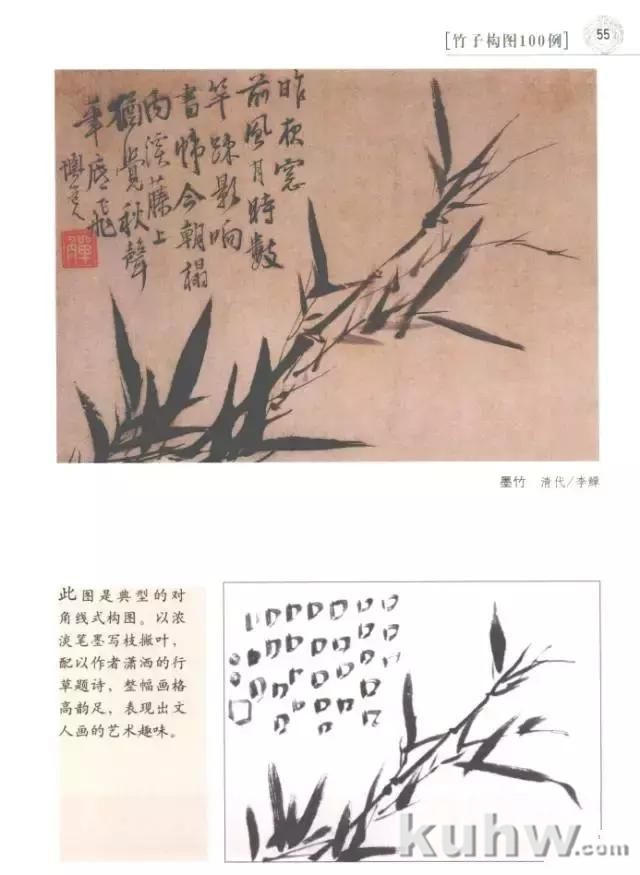 [竹子构图100例]
55
昨夜窓
前風月時數
竿踈影响
書幃今朝搨
向溪藤上
猶覺秋聲
筆底飛
墨竹 清代/李鱓
此图是典型的对
角线式构图。以浓
淡笔墨写枝撇叶，
配以作者潇洒的行
草题诗，整幅画格
高韵足，表现出文
人画的艺术趣味。
kuhw.com